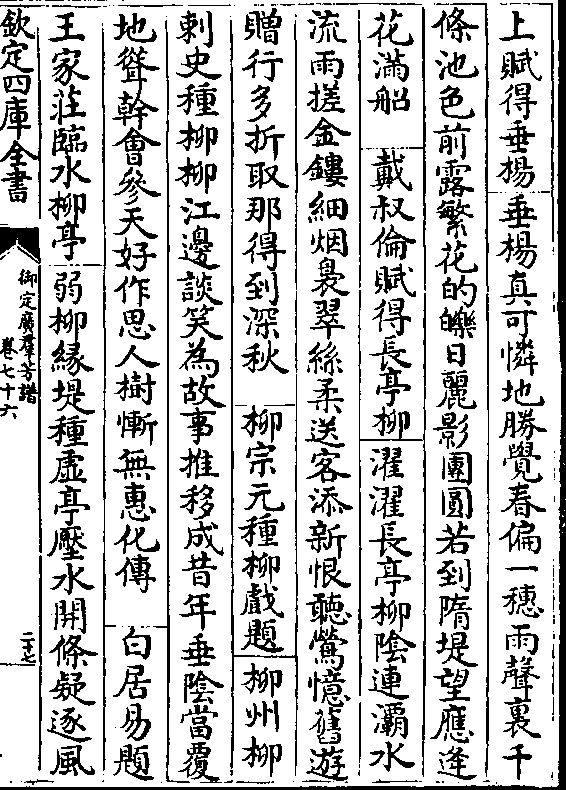 上賦得垂楊　垂楊真可憐地勝覺春偏一穗雨聲裏千
條池色前露繁花的皪日麗影團圓若到隋堤望應逢
花滿船　戴叔倫賦得長亭柳　濯濯長亭柳陰連灞水
流雨搓金縷細烟裊翠絲柔送客添新恨聽鶯憶舊游
贈行多折取那得到深秋　柳宗元種柳戲題　柳州柳
刺史種柳柳江邊談笑為故事推移成昔年垂陰當覆
地聳幹會參天好作思人樹慚無惠化傳　白居易題
王家莊臨水柳亭　弱柳緣堤種虛亭壓水開條疑逐風
欽定四庫全書　御定廣羣芳譜　卷七十六　二十七